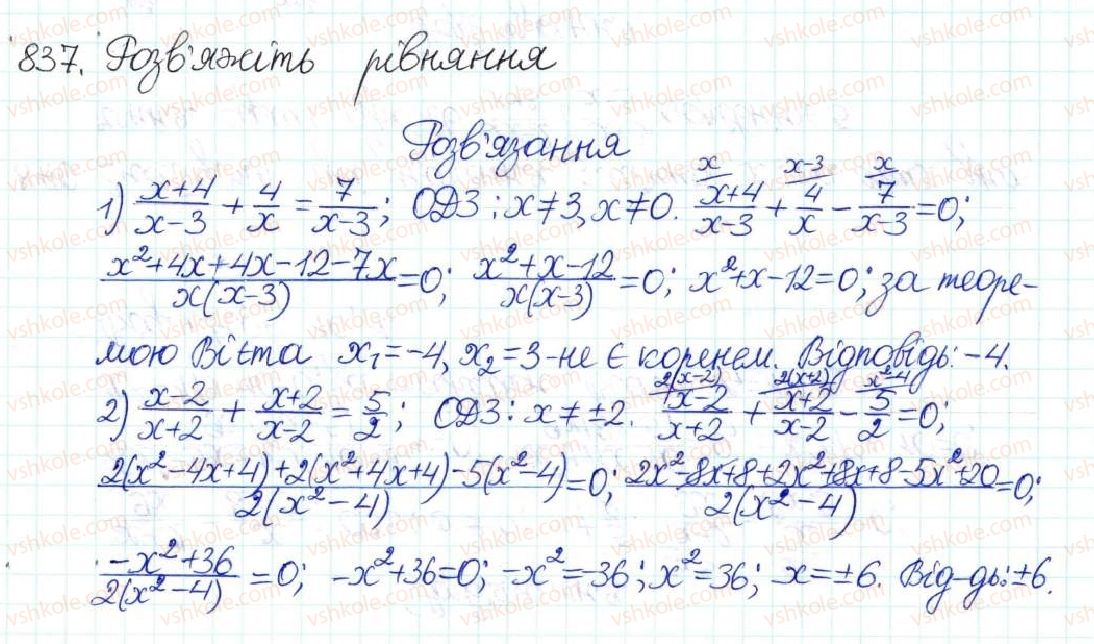 837. Розв'яжіть рівняння
Розв'язання
1) (x+4)/(x-3) + 4/x = 7/(x-3); ОДЗ: x≠3, x≠0. x/ (x+4)/(x-3) + x-3/ 4/x - x/ 7/(x-3) = 0;
(x²+4x+4x-12-7x)/(x(x-3)) = 0; (x²+x-12)/(x(x-3)) = 0; x²+x-12=0; за теоре-
мою Вієта x₁=-4, x₂=3-не є коренем. Відповідь: -4.
2) (x-2)/(x+2) + (x+2)/(x-2) = 5/2; ОДЗ: x≠±2. 2(x-2)/ (x-2)/(x+2) + 2(x+2)/ (x+2)/(x-2) - x²-4/ 5/2 = 0;
(2(x²-4x+4)+2(x²+4x+4)-5(x²-4))/(2(x²-4)) = 0; (2x²-8x+8+2x²+8x+8-5x²+20)/(2(x²-4)) = 0;
(-x²+36)/(2(x²-4)) = 0; -x²+36=0; -x²=-36; x²=36; x=±6. Від-дь: ±6.